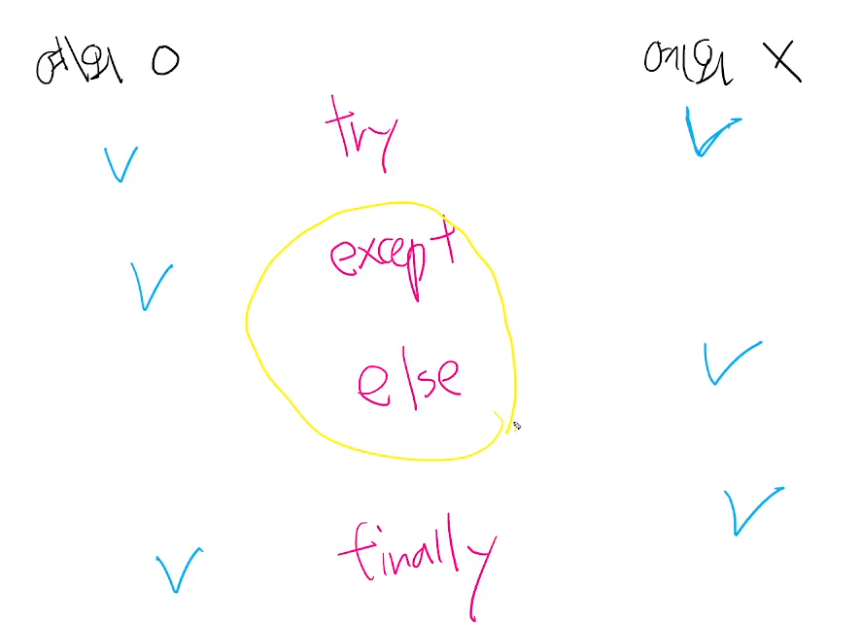 예외 O 예외 X
try
except
else
finally